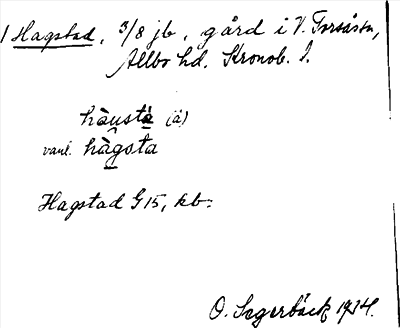 1 Hagstad, 3/8 jb, gård i V. Torsåsson,
Allbo hd. Kronob. l.
hàustà (ä)
vanl. hàgsta
Hagstad G 15, kb.
O. Segerbäck 1934.